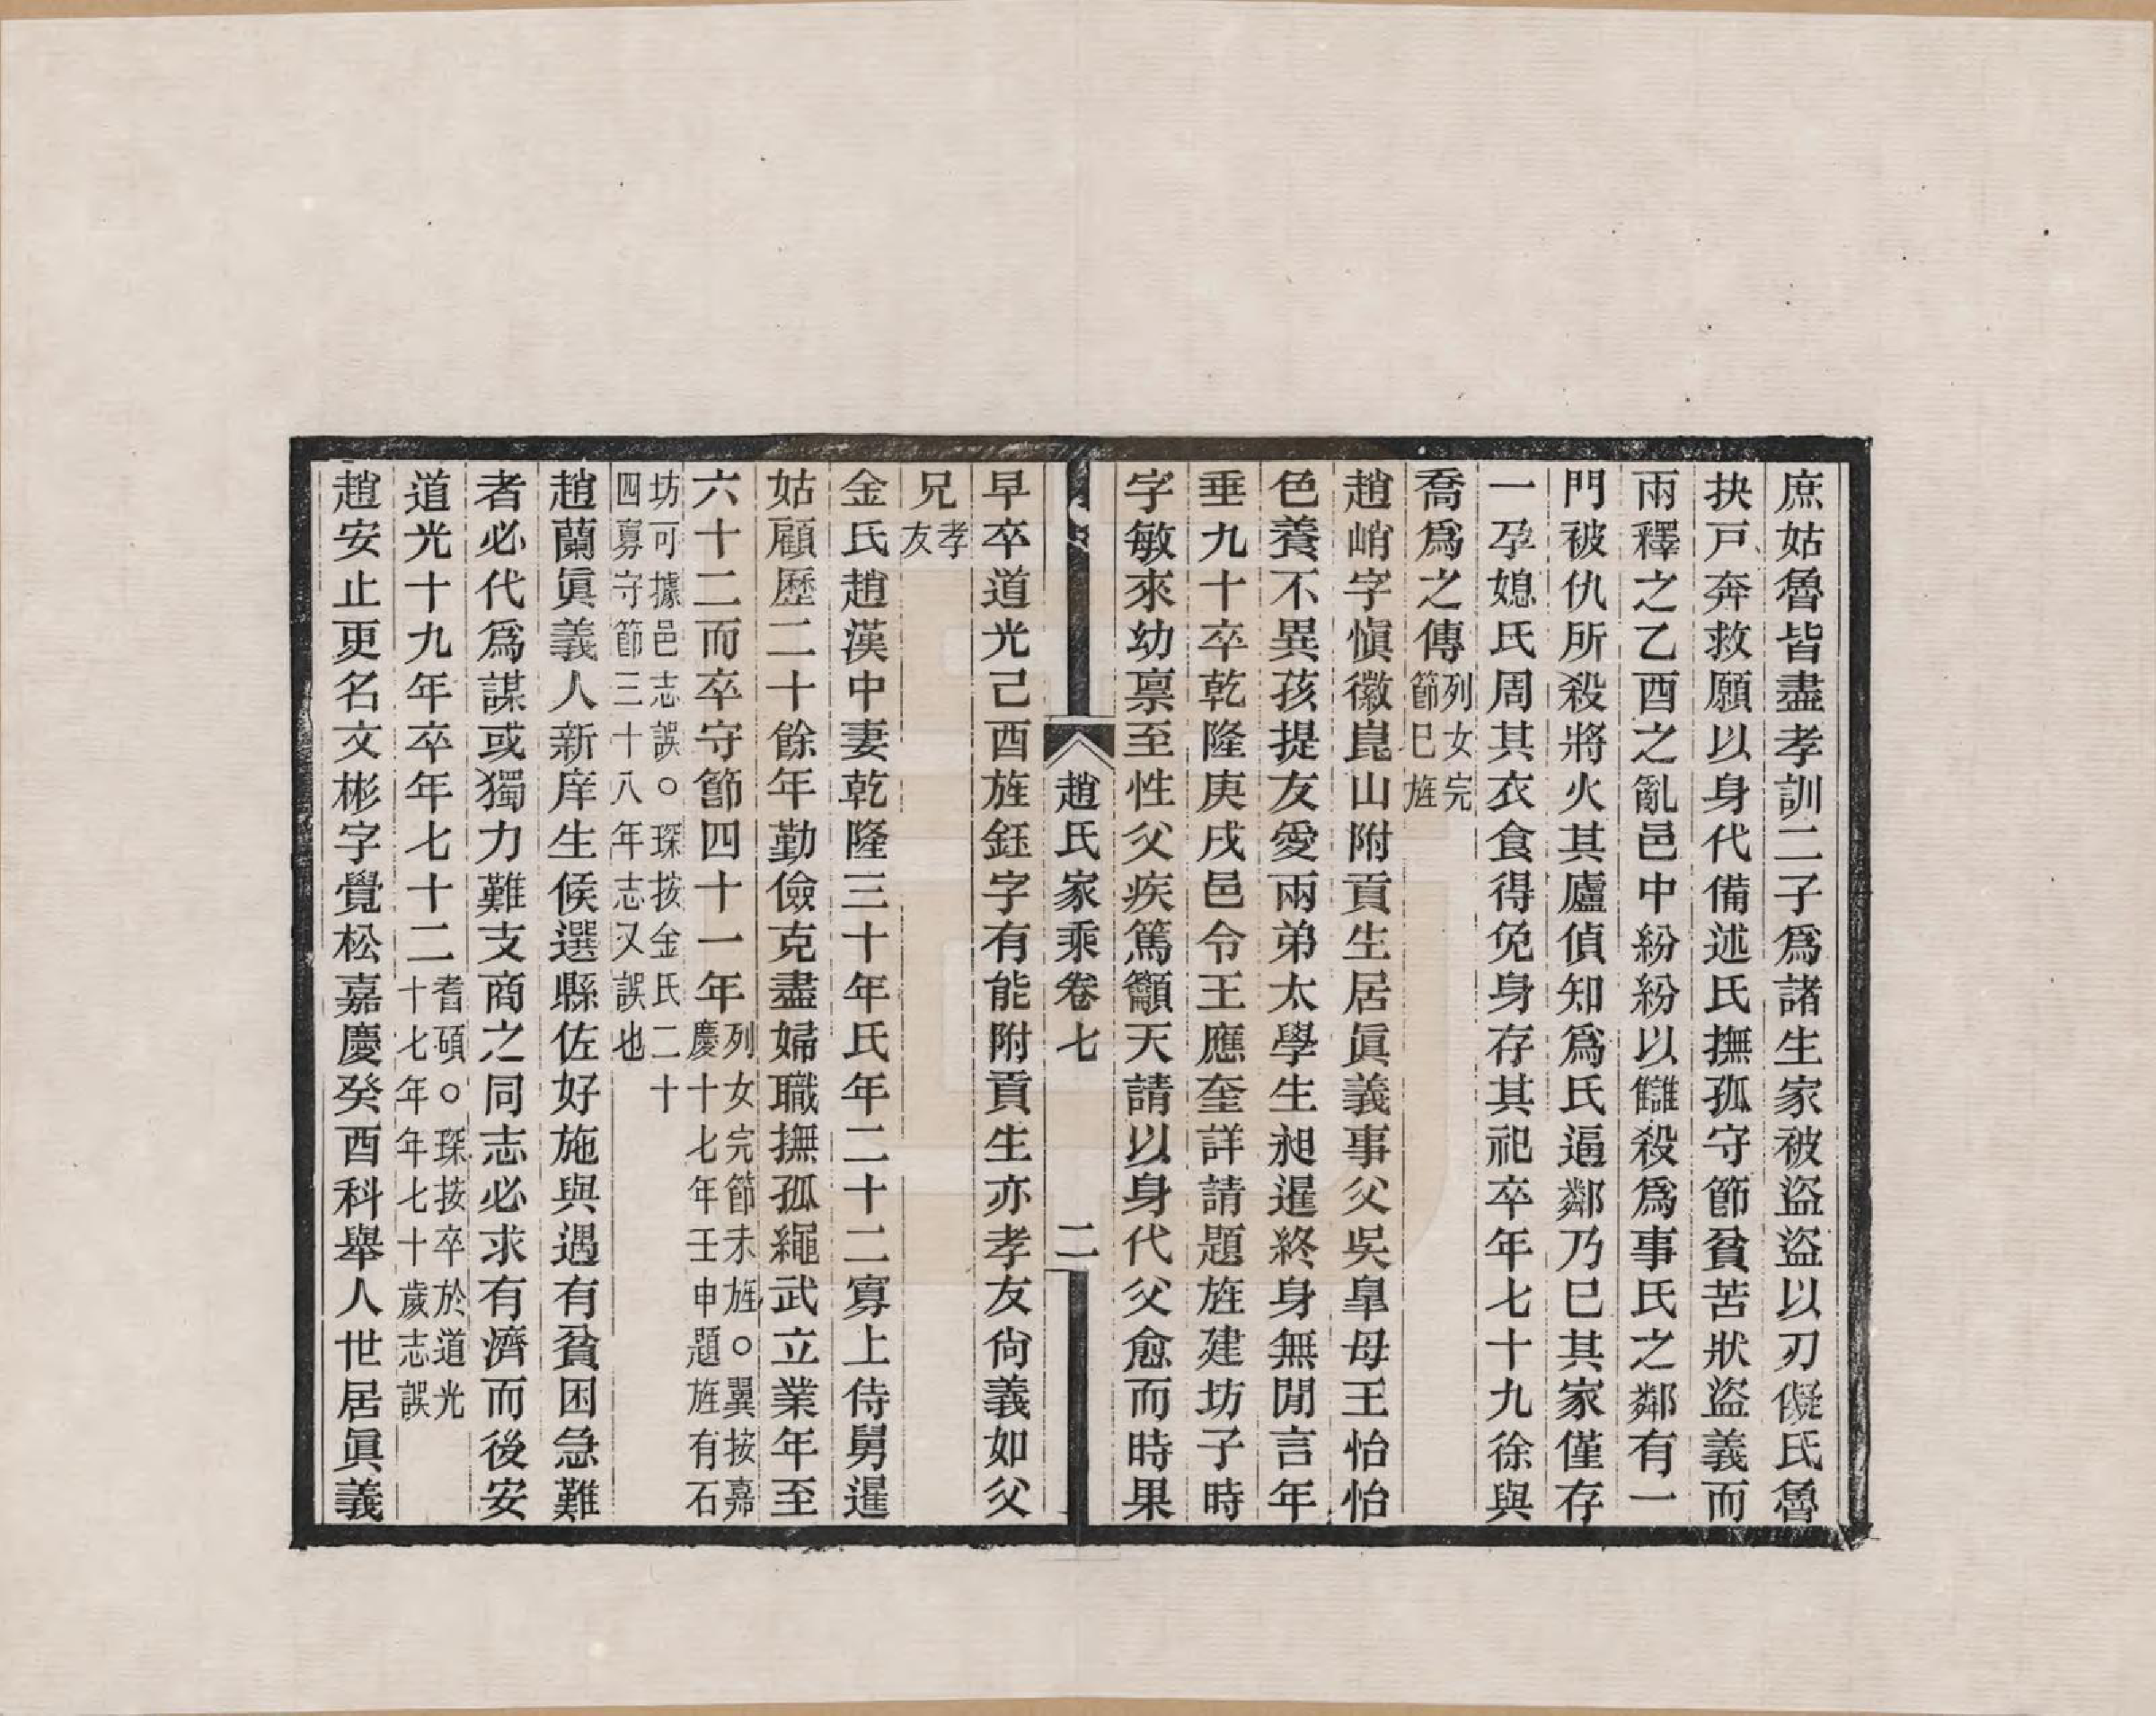 庶姑魯皆盡孝訓二子爲諸生家被盜盜以刃儗氏魯
抉戸奔救願以身代備述氏撫孤守節貧苦狀盜義而
兩釋之乙酉之亂邑中紛紛以讎殺爲事氏之鄰有一
門被仇所殺將火其廬偵知爲氏逼鄰乃巳其家僅存
一孕媳氏周其衣食得免身存其祀卒年七十九徐與
喬爲之傳列女完節巳旌
趙峭字愼徽崑山附貢生居眞義事父吳皐母王怡怡
色養不異孩提友愛兩弟太學生昶暹終身無閒言年
垂九十卒乾隆庚戌邑令王應奎詳請題旌建坊子時
字敏來幼禀至性父疾篤籲天請以身代父愈而時果
趙氏家乘卷七
二
早卒道光己酉旌鈺字有能附貢生亦孝友尙義如父
兄孝友
金氏趙漢中妻乾隆三十年氏年二十二寡上侍舅暹
姑顧歷二十餘年勤儉克盡婦職撫孤繩武立業年至
六十二而卒守節四十一年列女完節未旌○翼按嘉慶十七年壬申題旌有石
坊可據邑志誤○琛按金氏二十四寡守節三十八年志又誤也
趙蘭眞義人新庠生候選縣佐好施與遇有貧困急難
者必代爲謀或獨力難支商之同志必求有濟而後安
道光十九年卒年七十二耆碩○琛按卒於道光十七年年七十歲志誤
趙安止更名文彬字覺松嘉慶癸酉科舉人世居眞義